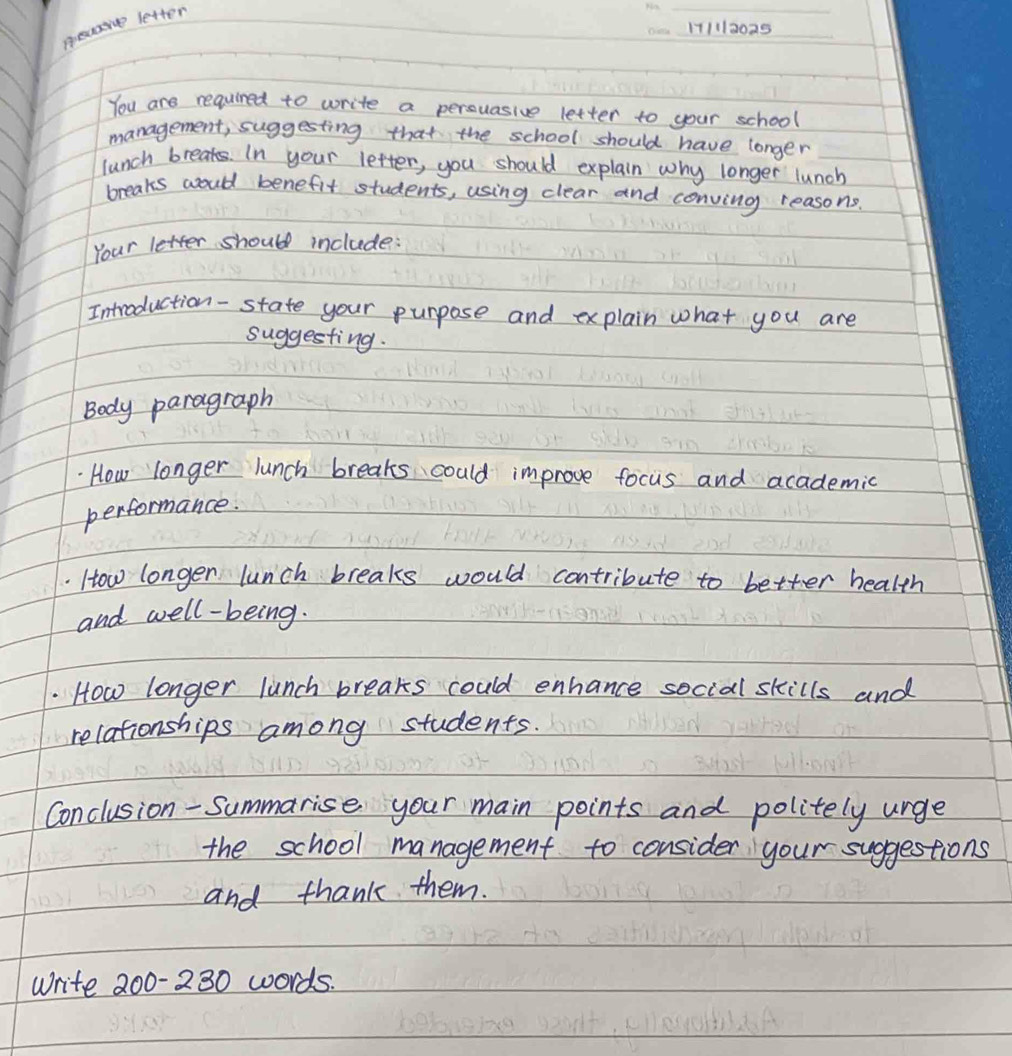 Persuasive letter
17/1/2025
You are required to write a persuasive letter to your school
management, suggesting that the school should have longer
lunch breaks. In your letter, you should explain why longer lunch
breaks would benefit students, using clear and conving reasons.
Your letter should include:
Introduction - state your purpose and explain what you are
suggesting.
Body paragraph
· How longer lunch breaks could improve focus and academic
performance.
· How longer lunch breaks would contribute to better health
and well-being.
· How longer lunch breaks could enhance social skills and
relationships among students.
Conclusion - Summarise your main points and politely urge
the school management to consider your suggestions
and thank them.
Write 200-230 words.